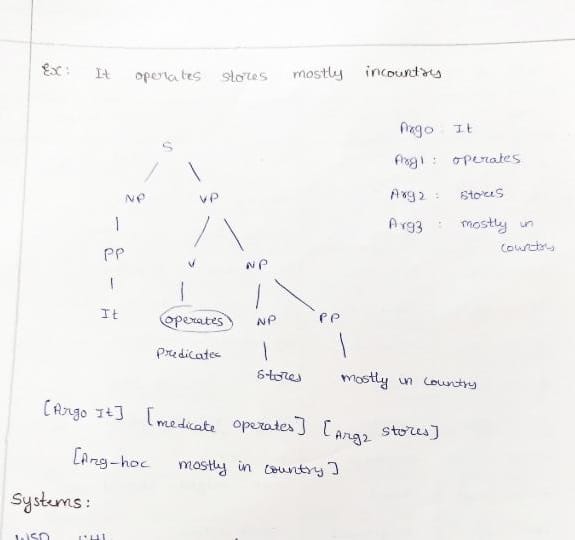 Ex: It operates stores mostly incountry
Arg0 : It
Arg1 : operates
Arg2 : stores
Arg3 : mostly in
country
S
NP VP
PP V NP
It operates NP PP
Predicates
stores mostly in country
[Arg0 It] [medicate operates] [Arg2 stores]
[Arg-hoc mostly in country]
Systems:
WSD